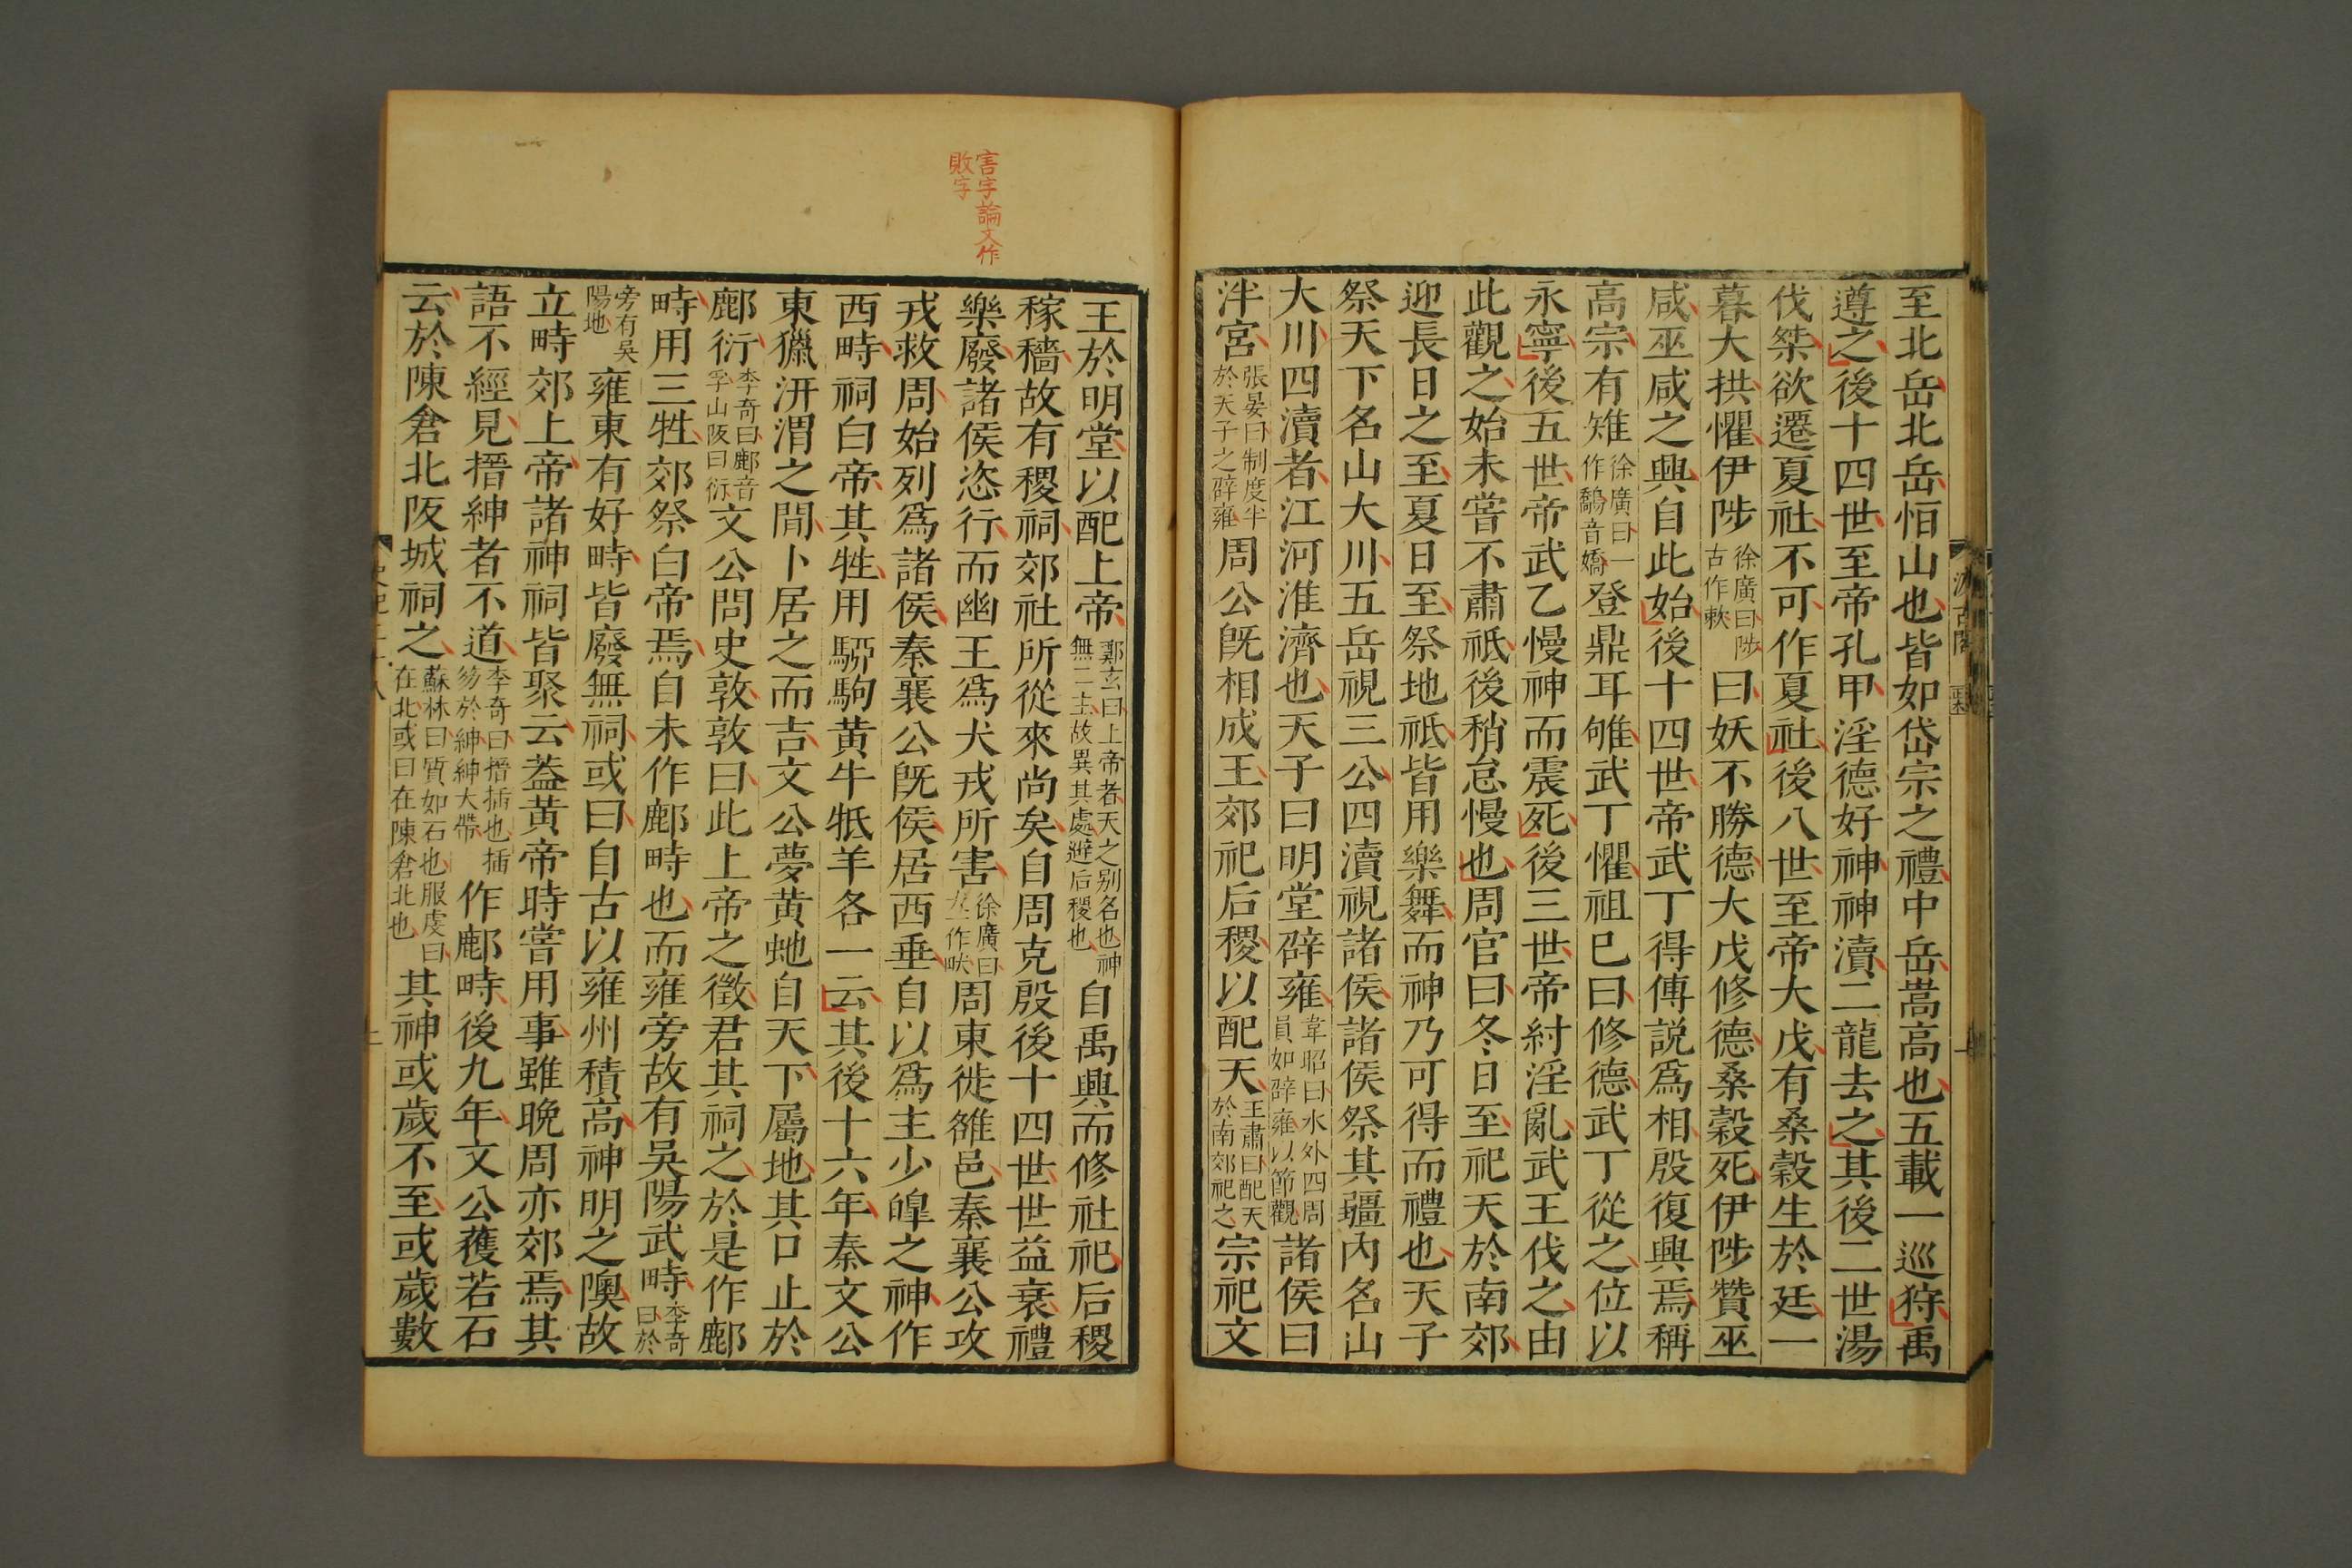 至北岳北岳恒山也皆如岱宗之禮中岳嵩高也五載一巡狩禹
遵之後十四世至帝孔甲淫德好神神瀆二龍去之其後二世湯
伐桀欲遷夏社不可作夏社後八世至帝大戊有桑榖生於廷一
暮大拱懼伊陟徐廣曰陟古作𢾅曰妖不勝德大戊修德桑榖死伊陟贊巫
咸巫咸之興自此始後十四世帝武丁得傅説爲相殷復興焉稱
高宗有雉徐廣曰一作鷮音嬌登鼎耳雊武丁懼祖巳曰修德武丁從之位以
永寧後五世帝武乙慢神而震死後三世帝紂淫亂武王伐之由
此觀之始未嘗不肅祗後稍怠慢也周官曰冬日至祀天於南郊
迎長日之至夏日至祭地祗皆用樂舞而神乃可得而禮也天子
祭天下名山大川五岳視三公四瀆視諸侯諸侯祭其疆內名山
大川四瀆者江河淮濟也天子曰明堂辟雍韋昭曰水外四周員如辟雍以節觀諸侯曰
泮宮張晏曰制度半於天子之辟雍周公旣相成王郊祀后稷以配天王肅曰配天於南郊祀之宗祀文
汲古閣
害字論文作
敗字
王於明堂以配上帝鄭玄曰上帝者天之别名也神無二主故異其處避后稷也自禹興而修社祀后稷
稼穡故有稷祠郊社所從來尚矣自周克殷後十四世世益衰禮
樂廢諸侯恣行而幽王爲犬戎所害徐廣曰一作敗周東徙雒邑秦襄公攻
戎救周始列爲諸侯秦襄公旣侯居西垂自以爲主少皥之神作
西畤祠白帝其牲用騮駒黃牛羝羊各一云其後十六年秦文公
東獵汧渭之間卜居之而吉文公夢黃虵自天下屬地其口止於
鄜衍李奇曰鄜音孚山阪曰衍文公問史敦敦曰此上帝之徵君其祠之於是作鄜
畤用三牲郊祭白帝焉自未作鄜畤也而雍旁故有吳陽武畤李奇曰於
旁有吳陽地雍東有好畤皆廢無祠或曰自古以雍州積高神明之隩故
立畤郊上帝諸神祠皆聚云蓋黃帝時嘗用事雖晚周亦郊焉其
語不經見搢紳者不道李奇曰搢插也插笏於紳紳大帶作鄜畤後九年文公獲若石
云於陳倉北阪城祠之蘇林曰質如石也服虔曰在北或曰在陳倉北也其神或歲不至或歲數